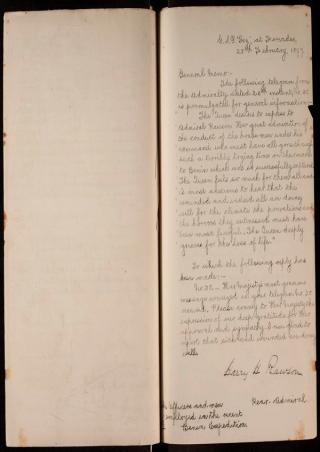 G.S.F. "Fox" at Grenada,
28th February, 1897.
General Memo:-
The following telegram from
the Admiralty dated 26th instant, No 25
is promulgated for general information:-
"The Queen desires to express to
Admiral Rawson Her great admiration of
the conduct of the brave men under his
command who must have all gone through
such a terribly trying time on the march
to Benin which was so successfully effected.
The Queen feels so much for them all and
is most anxious to hear that the
wounded and indeed all are doing
well for the climate the privations and
the horrors they witnessed must have
been most fearful. The Queen deeply
grieves for the loss of life."
To which the following reply has
been made:-
No 30. - Her Majesty's most gracious
message conveyed in your telegram No 25
received. Please convey to Her Majesty the
expression of our deep gratitude for this
approval and sympathy. I am glad to
report that sick and wounded are doing
well.
Harry H Rawson
Rear Admiral
Officers and men
employed in the recent
Benin Expedition